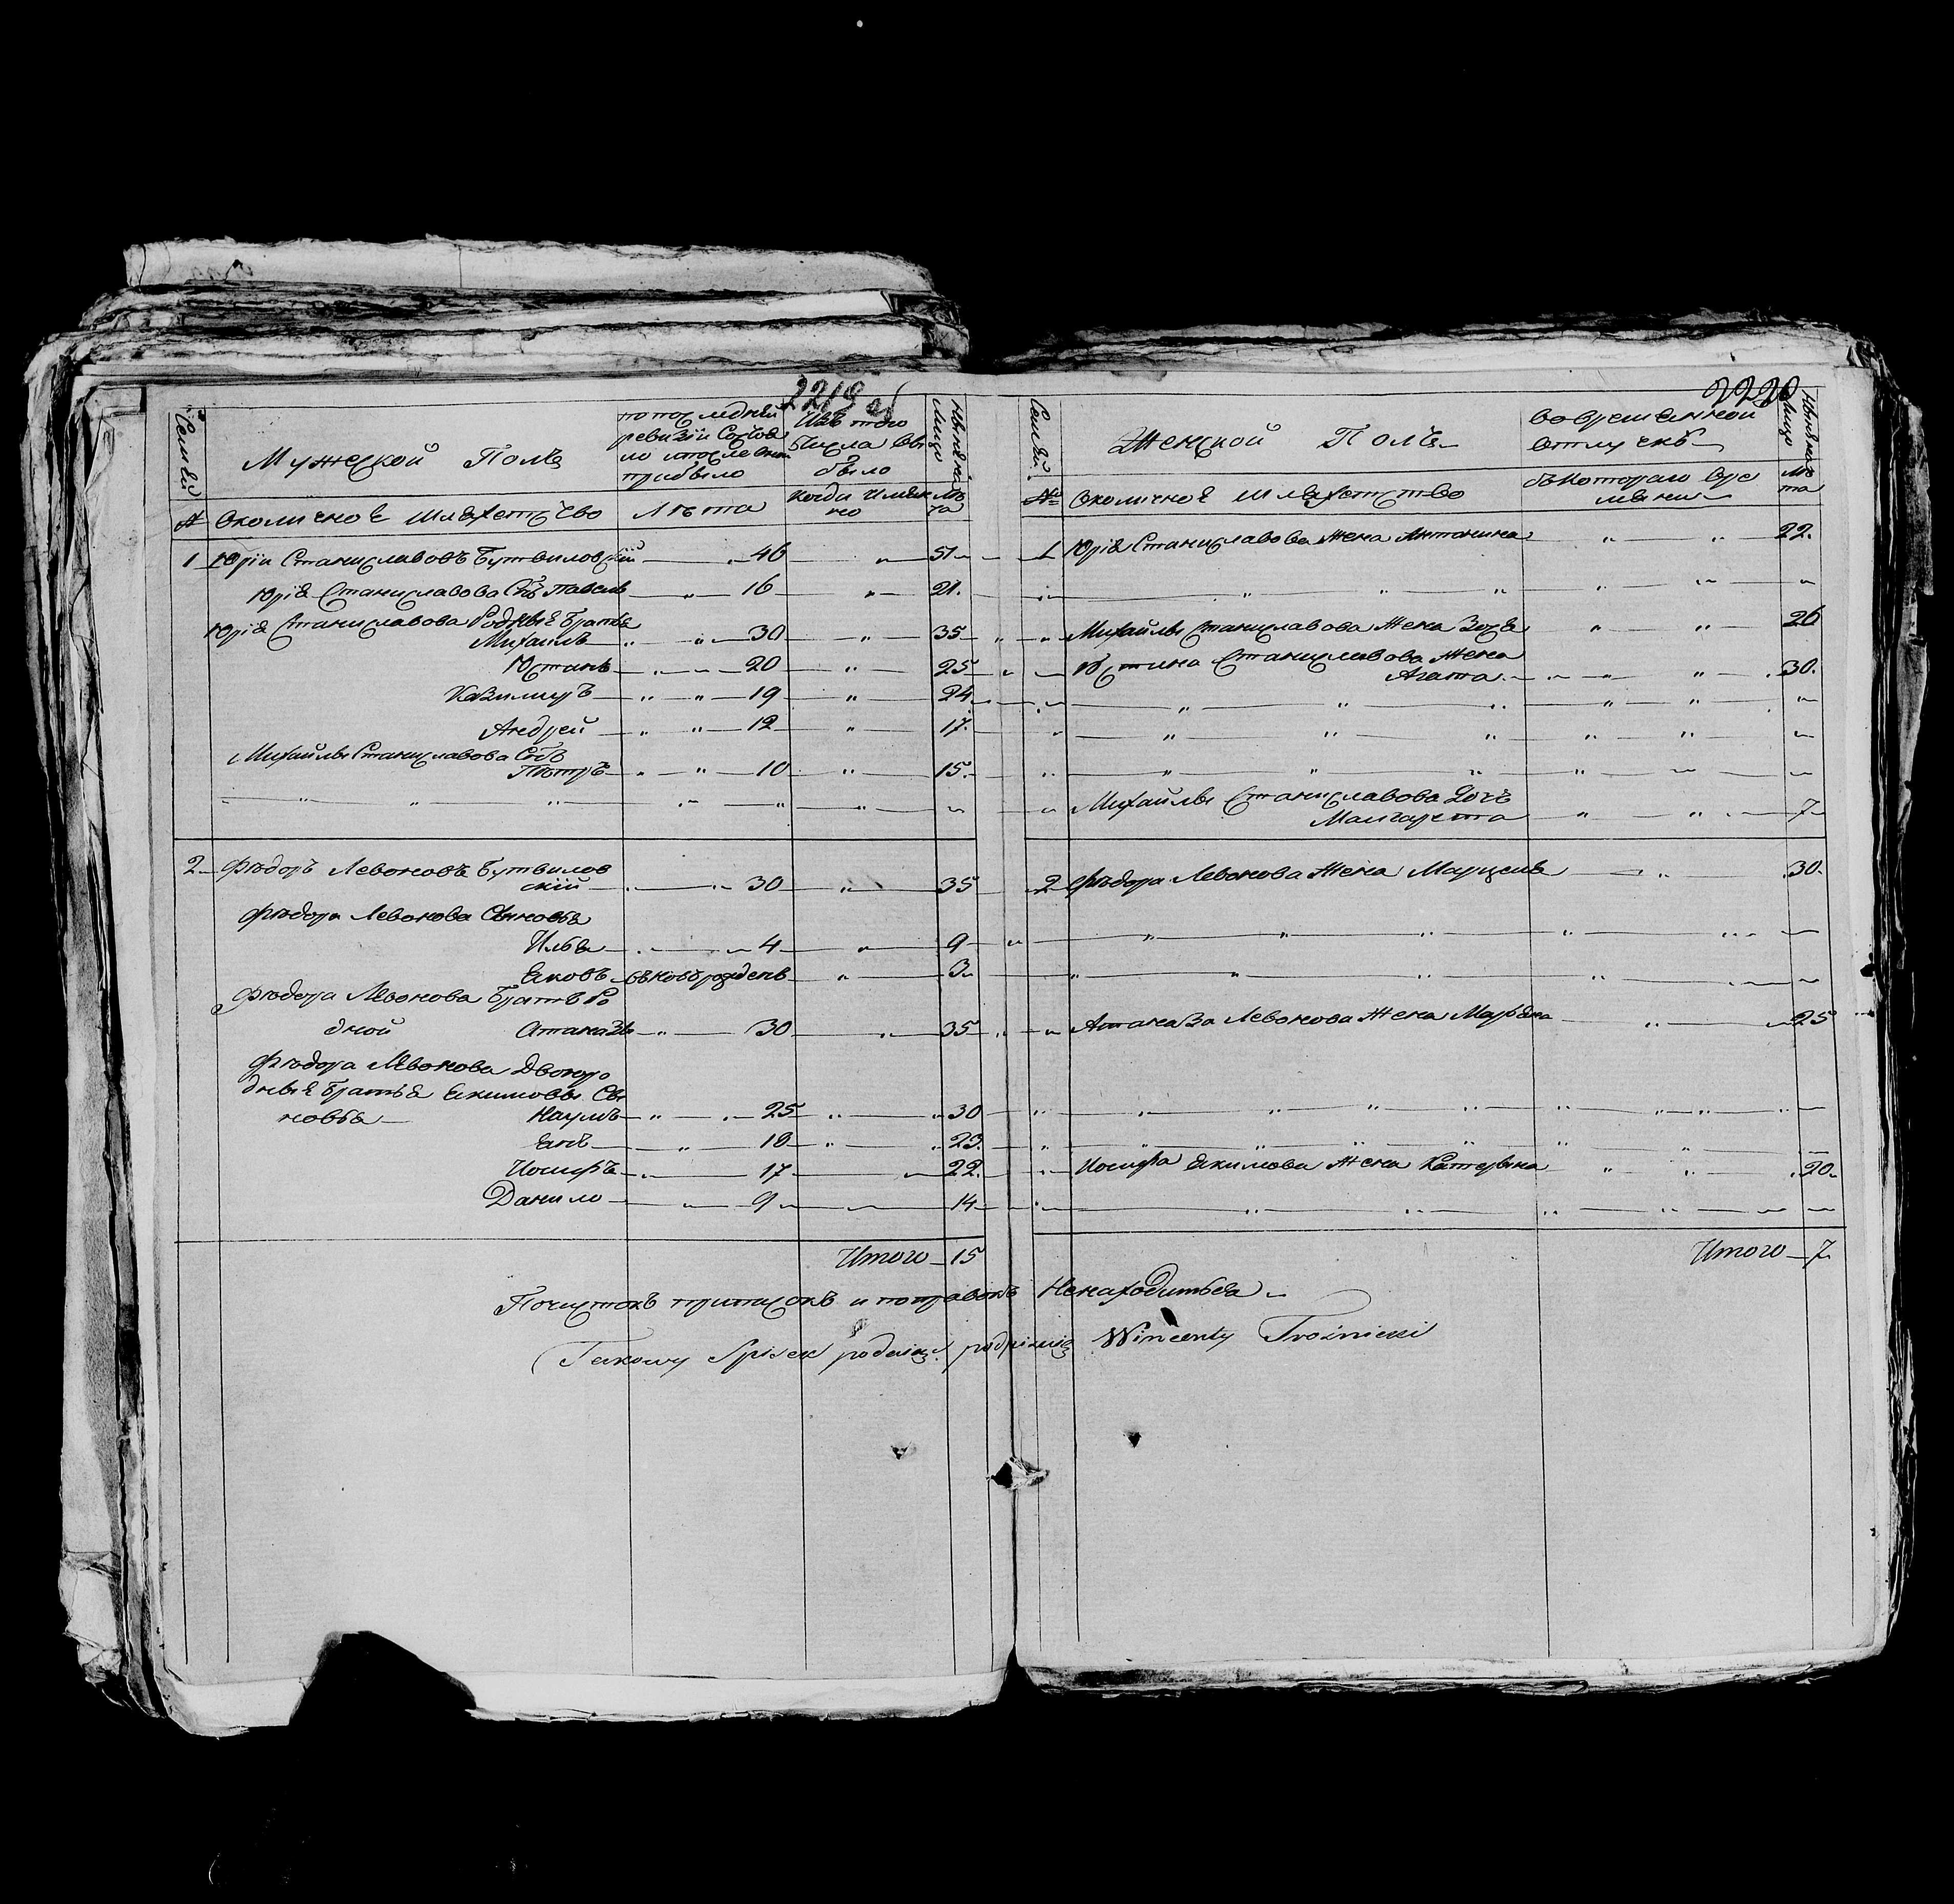 2219 об
Семьи
Мужеской Полъ
по последней
ревизіи Состоя
ло и после оной
прибыло
Изъ того
Числа Вы
было
Ныне на
Лицо
№ Околичное Шляхетство
Лѣта
Когда Имен
но
Лѣ
та
1 Юріи Станиславовъ Бутвиловскій 46 " 51
Юрія Станиславова Сынъ Павелъ " 16 " 21.
Юрія Станиславова Родные Братья
Михаилъ " " 30 " 35
Юстинъ " 20 " 25
Казимиръ " " 19 " 24
Андрей " " 12 " 17.
Михайлы Станиславова Сынъ
Пётръ " " 10 " 15.
2 Фёдоръ Левоновъ Бутвилов
скій " 30 " 35
Фёдора Левонова Сыновья
Илья 4 " 9
Яковъ вновь рожденъ " 3
Фёдора Левонова Братъ Ро
дной Атаназы " 30 " 35
Фёдора Левонова Двоюро
дные Братья Якимовы Сы
новья Наумъ " 25 " 30
Янъ " 18 " 23.
Иосифъ " 17 " 22.
Данило " 9 14
Итого 15
2220
Семьи
Женской Полъ
Во Временной
отлучкѣ
Ныне на
лицо
№ Околичное Шляхетство
Съ Котораго Вре
мени
Лѣ
та
1 Юрія Станиславова Жена Антонина " " 22.
Михайлы Станиславова Жена Зося " " 26
Юстина Станиславова Жена
Агата " " 30.
Михайлы Станиславова Дочь
Малгарета " " 7
2 Фёдора Левонова Жена Марцеля " 30.
Атаназа Левонова Жена Марьяна " 25
Иосифа Якимова Жена Катерина " " 20.
Итого 7
Почистокъ приписокъ и поправокъ Ненаходиться
Takowy Spisek podaiąc podpisuię Wincenty